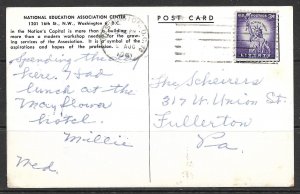 NATIONAL EDUCATION ASSOCIATION CENTER
1201 16th St., N.W., Washington 6, D.C.
in the Nation's Capital is more than a building
more than a modern workshop needed for the grow-
ing services of the Association. It is a symbol of the
aspirations and hopes of the profession.
Spending the
here. Had
lunch at the
Mayflower
hotel.
Millie
Wed.
POST CARD
AUG
1961
The Scheirers
317 W. Union St.
Fullerton
Pa.
3¢
LIBERTY